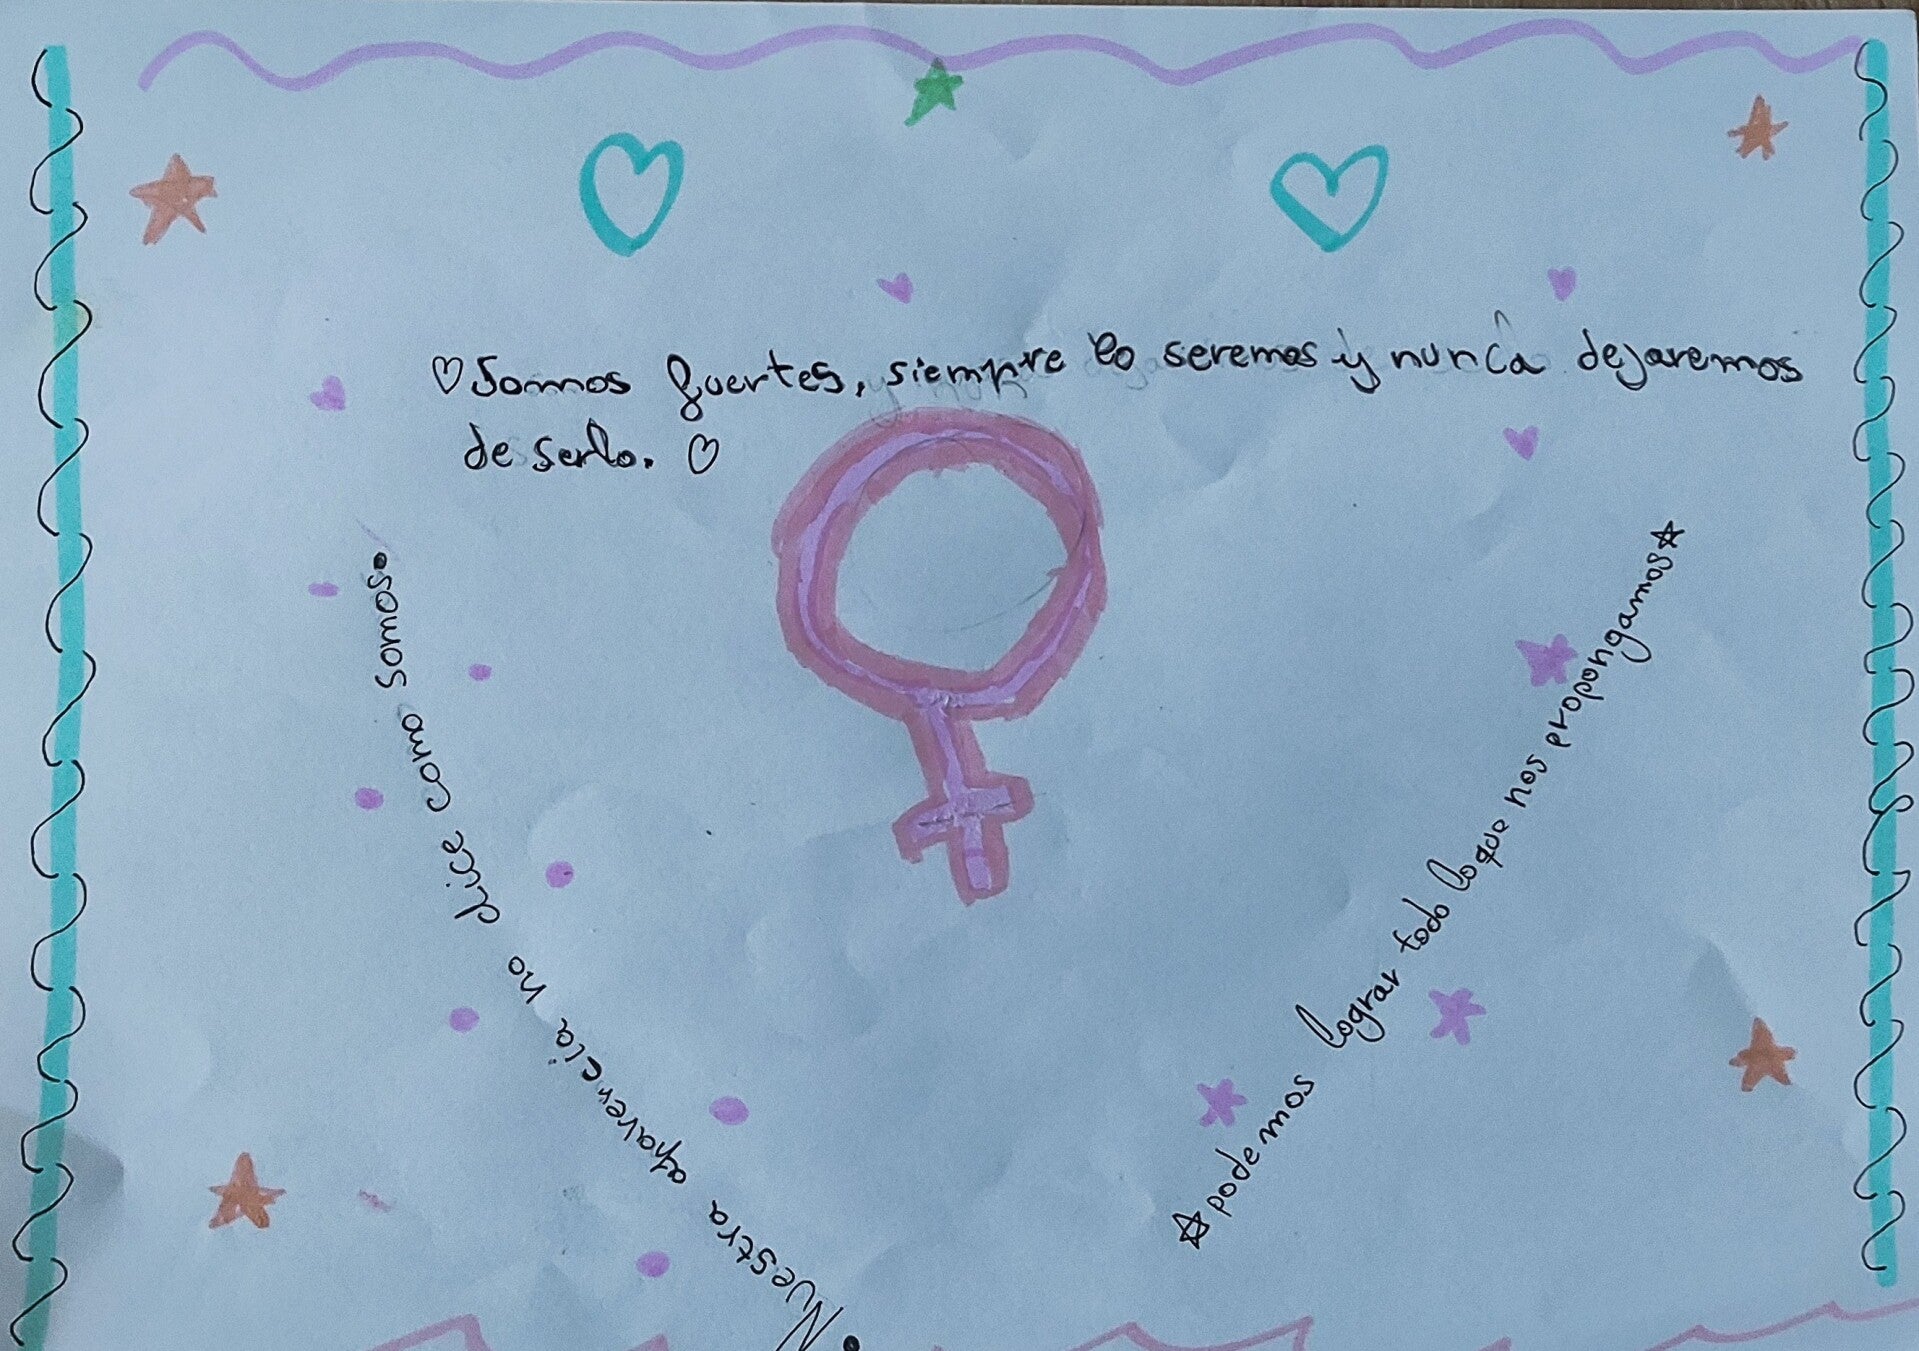 ♡ Somos fuertes, siempre lo seremos y nunca dejaremos
de serlo. ♡
• Nuestra apariencia no dice como somos •
☆ podemos lograr todo lo que nos propongamos ☆